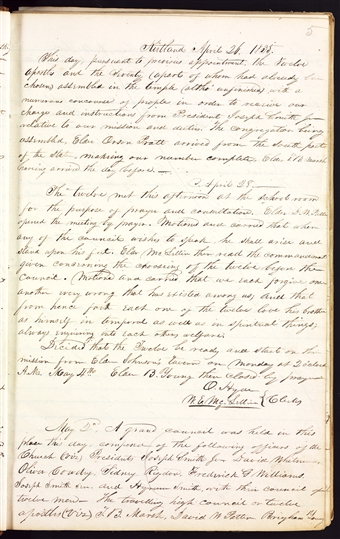 5
Kirtland April 26, 1835.
This day, pursuant to previous appointment, the Twelve
Apostles and the Seventy (a part of whom had already been
chosen) assembled in the temple (altho' unfinished) with a
numerous concourse of people in order to receive our
charge and instructions from President Joseph Smith Jun
relative to our mission and duties. The congregation being
assembled, Elder Orson Pratt arrived from the south part
of the State, making our number complete, Elder T. B. Marsh
having arived the day before.
April 28.
The twelve met this afternoon at the school room
for the purpose of prayer and consultation. Elder D. W. Patten
opened the meeting by prayer. Motioned and carried that when
any of the council wishes to speak he shall arise and
stand upon his feet. Elder McLellin then read the commandment
given concerning the choosing of the twelve began the
council. Motioned and carried that we each forgive one
another every wrong that has existed among us, and that
from hence forth each one of the twelve love his brother
as himself in temporal as well as in spiritual things,
always enquiring into each others welfare.
Decided that the Twelve be ready and start on their
mission from Elder Johnson's tavern on Monday at 2 o'clock
A.M. May 4th Elder B. Young then closed by prayer
O. Hyde
W. E. McLellin } Clerks
May 2d. A grand council was held in this
place this day, composed of the following officers of the
Church (viz) Presidents Joseph Smith Jun David Whitmer
Oliver Cowdery, Sidney Rigdon Frederick G. Williams,
Joseph Smith Sen. and Hyrum Smith, with their council of
twelve men The travelling high council or twelve
apostles (viz) T. B. Marsh, David W Patten Brigham Young